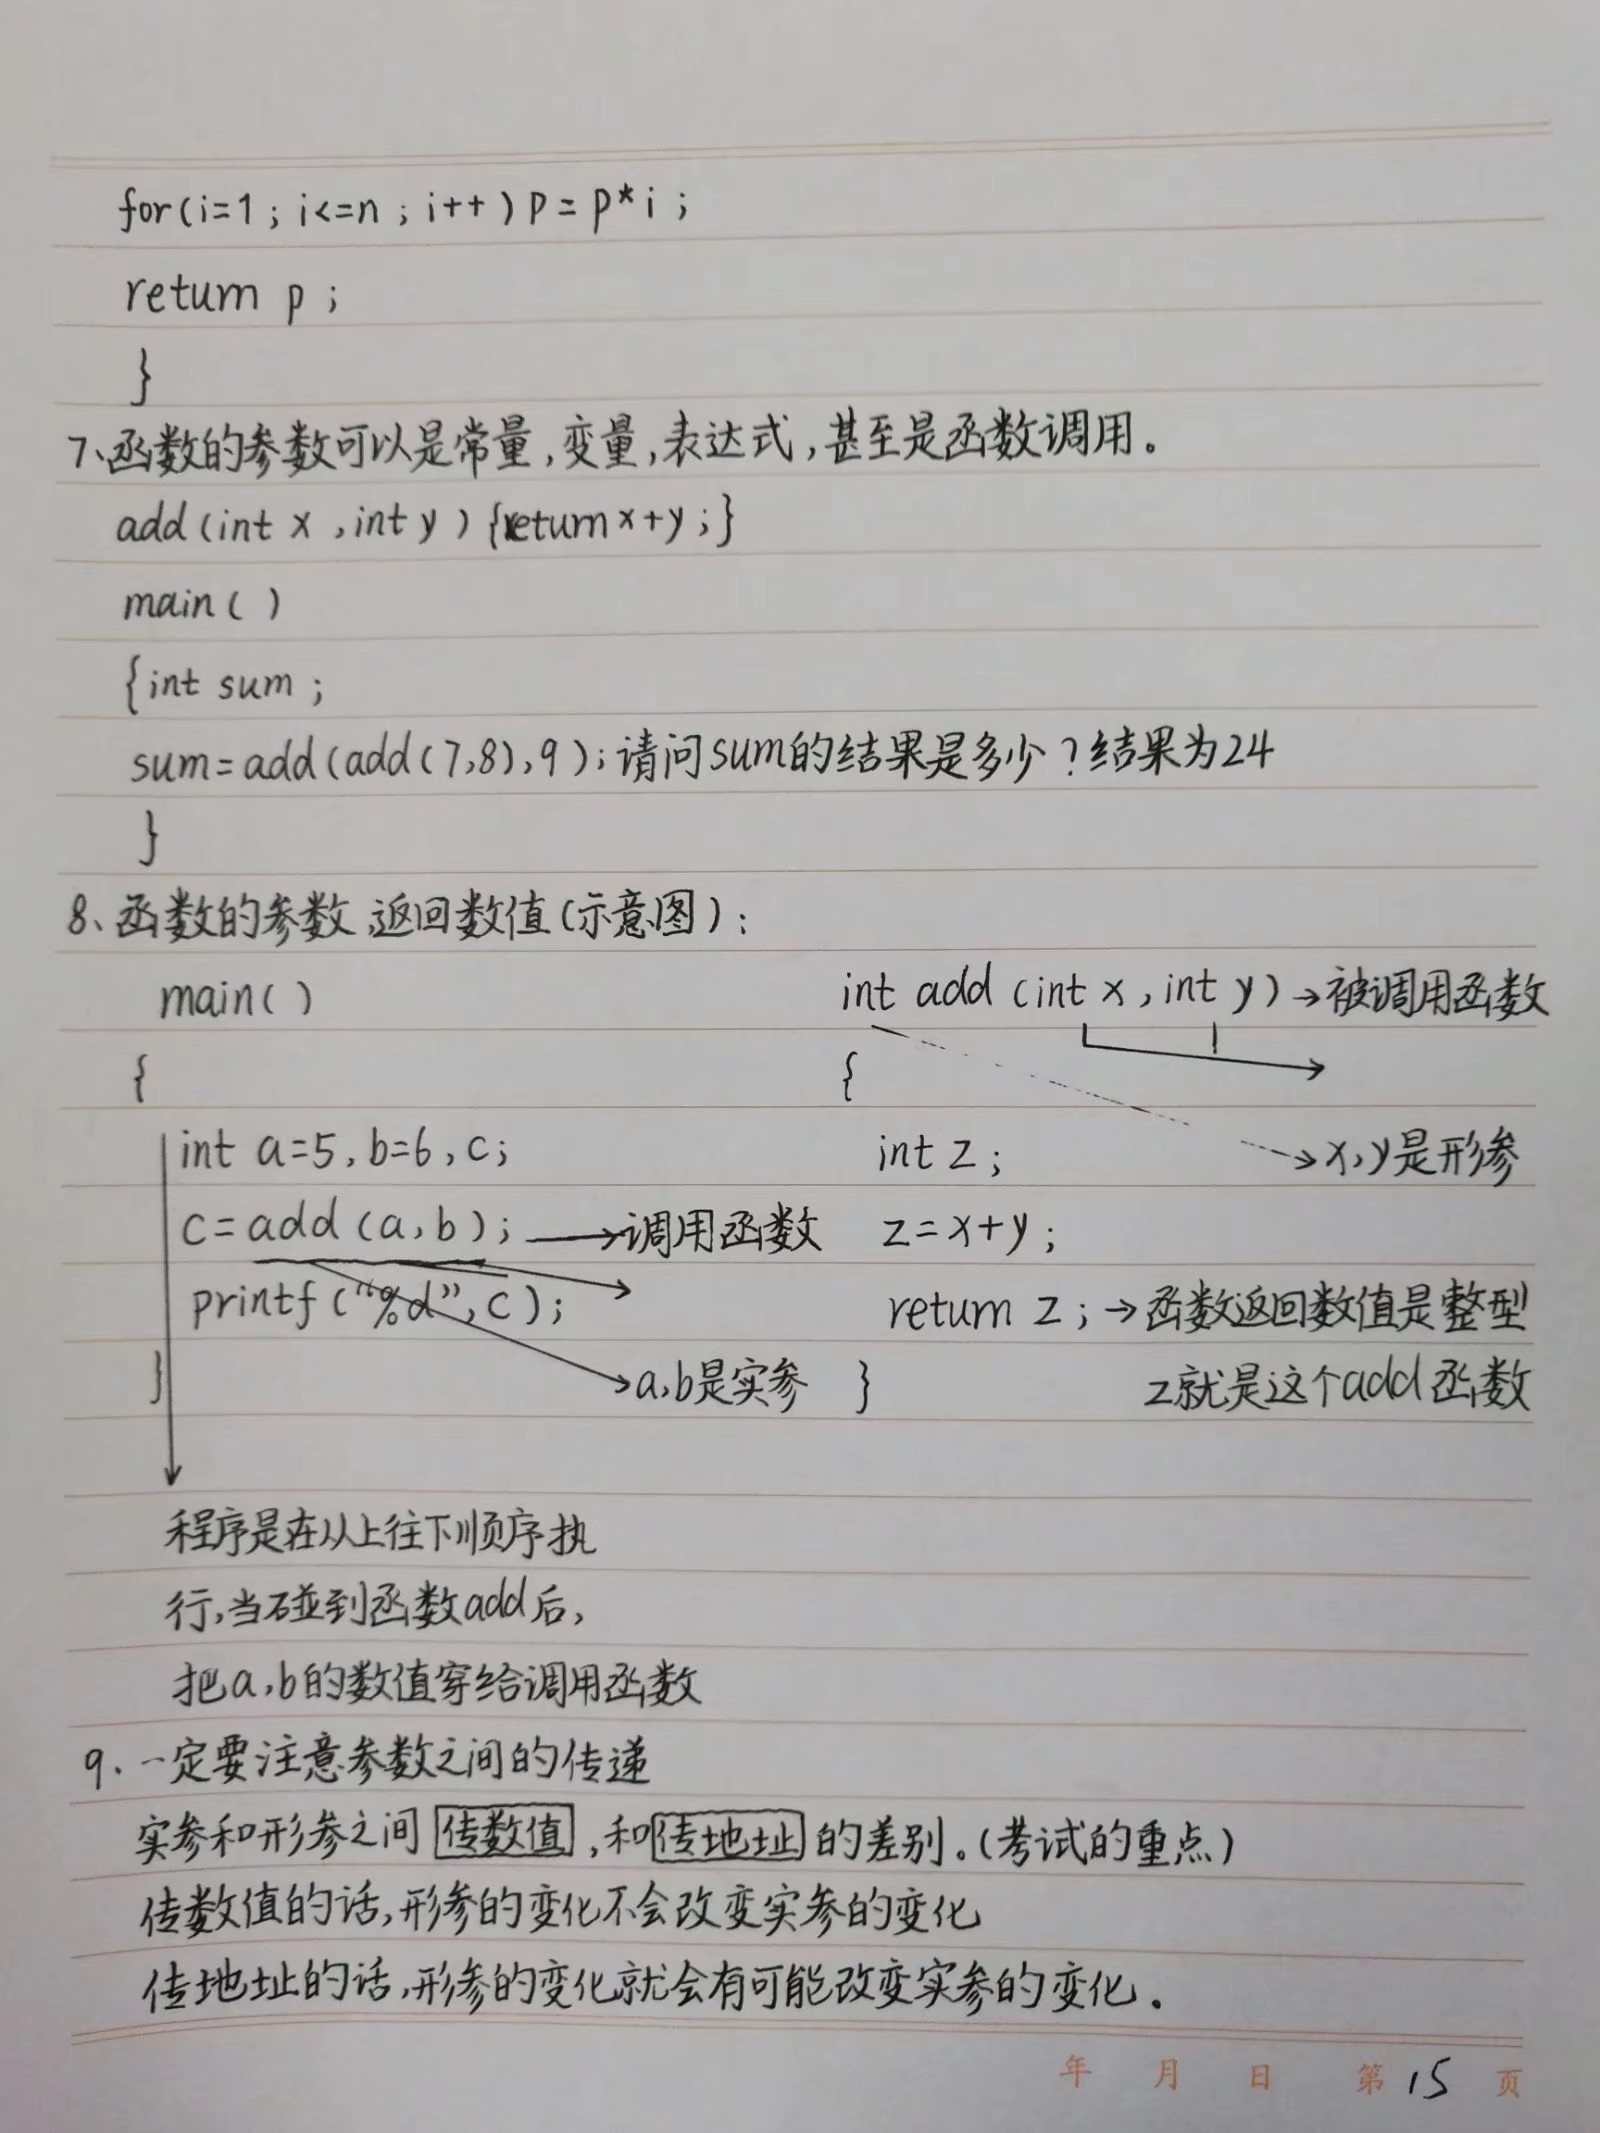 for(i=1;i<=n;i++)p=p*i;
return p;
}
7、函数的参数可以是常量,变量,表达式,甚至是函数调用。
add(int x,int y){return x+y;}
main()
{int sum;
sum=add(add(7,8),9);请问sum的结果是多少?结果为24
}
8、函数的参数,返回数值(示意图):
main() int add(int x,int y)→被调用函数
{ {
int a=5,b=6,c; int z; x,y是形参
c=add(a,b);→调用函数 z=x+y;
printf("%d",c); return z;→函数返回数值是整型
} a,b是实参 } z就是这个add函数
程序是在从上往下顺序执
行,当碰到函数add后,
把a,b的数值穿给调用函数
9.一定要注意参数之间的传递
实参和形参之间传数值,和传地址的差别。(考试的重点)
传数值的话,形参的变化不会改变实参的变化
传地址的话,形参的变化就会有可能改变实参的变化。
年 月 日 第15页